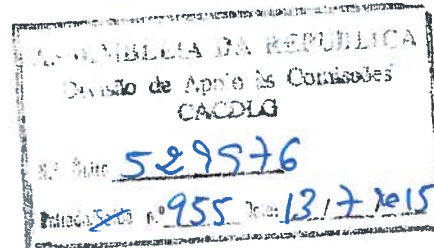 ASSEMBLEIA DA REPÚBLICA
Divisão de Apoio às Comissões
CACDLG
N.º Único 529576
Entrada/Saída n.º 955 Data: 13/7/2015